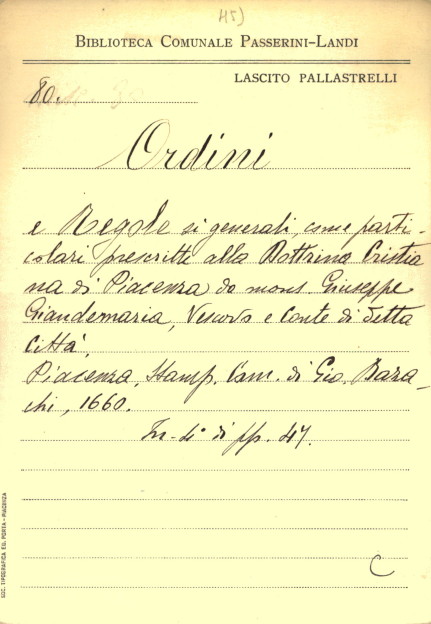 45)
BIBLIOTECA COMUNALE PASSERINI-LANDI
LASCITO PALLASTRELLI
80.
Ordini
e Regole si generali, come parti-
colari prescritte alla Dottrina Cristia
na di Piacenza da mons Giuseppe
Giandemaria, Vescovo e Conte di detta
città,
Piacenza, Stamp. Cam. di Gio. Baza-
chi, 1660.
In-4° di pp. 47.
C
SOC. TIPOGRAFICA ED. PORTA - PIACENZA